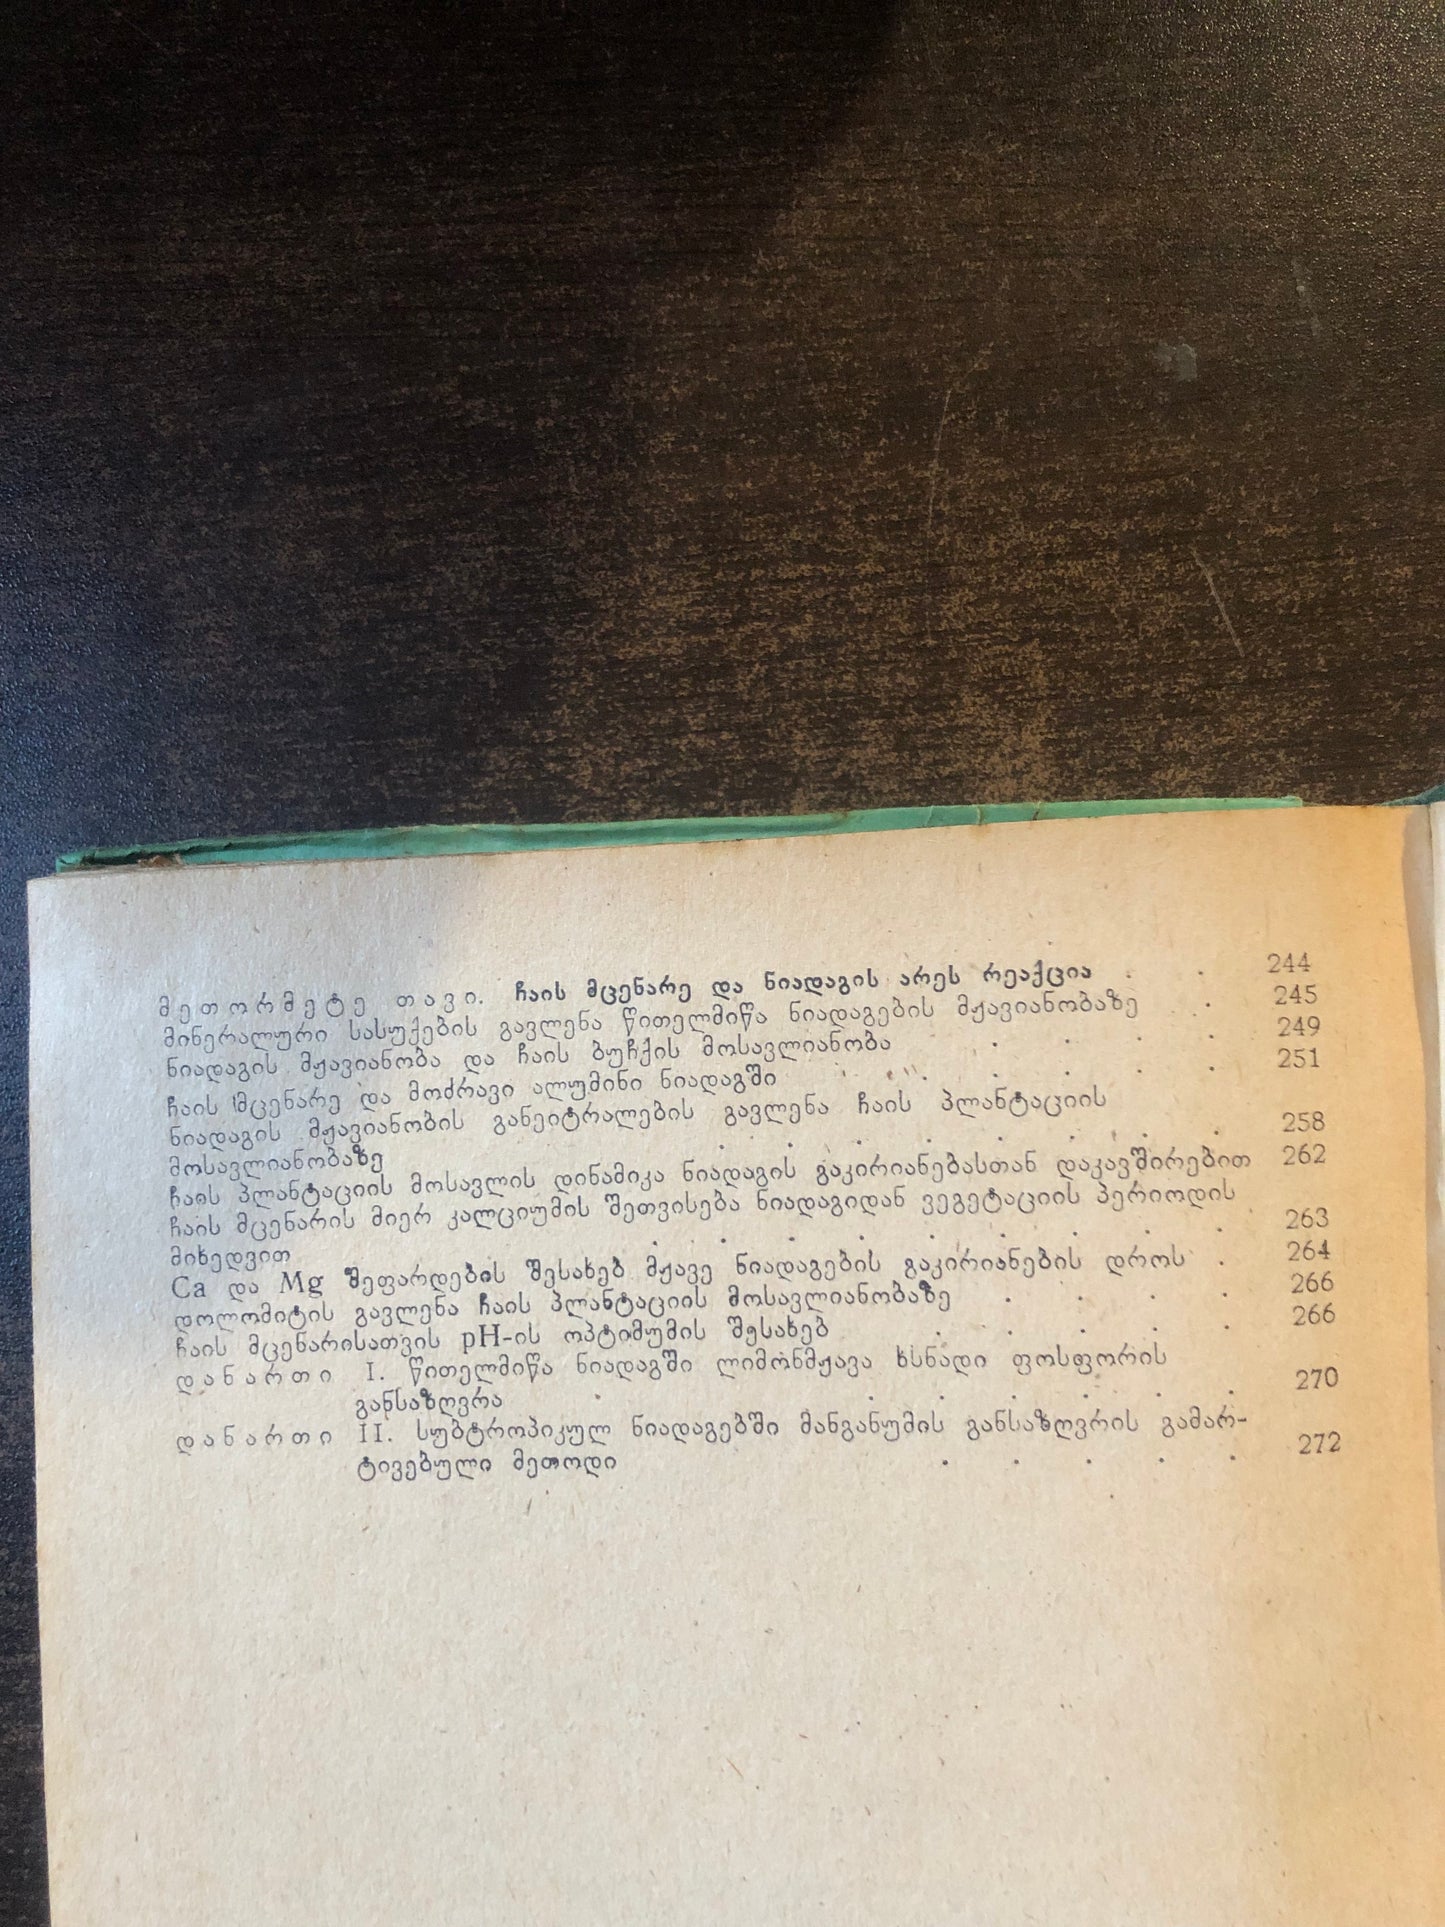 მეთორმეტე თავი. ჩაის მცენარე და ნიადაგის არეს რეაქცია . . 244
მინერალური სასუქების გავლენა წითელმიწა ნიადაგების მჟავიანობაზე . 245
ნიადაგის მჟავიანობა და ჩაის ბუჩქის მოსავლიანობა . . . . 249
ჩაის მცენარე და მოძრავი ალუმინი ნიადაგში . . . . . 251
ნიადაგის მჟავიანობის განეიტრალების გავლენა ჩაის პლანტაციის
მოსავლიანობაზე . . . . . . . . 258
ჩაის პლანტაციის მოსავლის დინამიკა ნიადაგის გაკირიანებასთან დაკავშირებით 262
ჩაის მცენარის მიერ კალციუმის შეთვისება ნიადაგიდან ვეგეტაციის პერიოდის
მიხედვით . . . . . . . . . 263
Ca და Mg შეფარდების შესახებ მჟავე ნიადაგების გაკირიანების დროს . 264
დოლომიტის გავლენა ჩაის პლანტაციის მოსავლიანობაზე . . . . 266
ჩაის მცენარისათვის pH-ის ოპტიმუმის შესახებ . . . . . 266
დანართი I. წითელმიწა ნიადაგში ლიმონმჟავა ხსნადი ფოსფორის
განსაზღვრა . . . . . . . 270
დანართი II. სუბტროპიკულ ნიადაგებში მანგანუმის განსაზღვრის გამარ-
ტივებული მეთოდი . . . . . 272